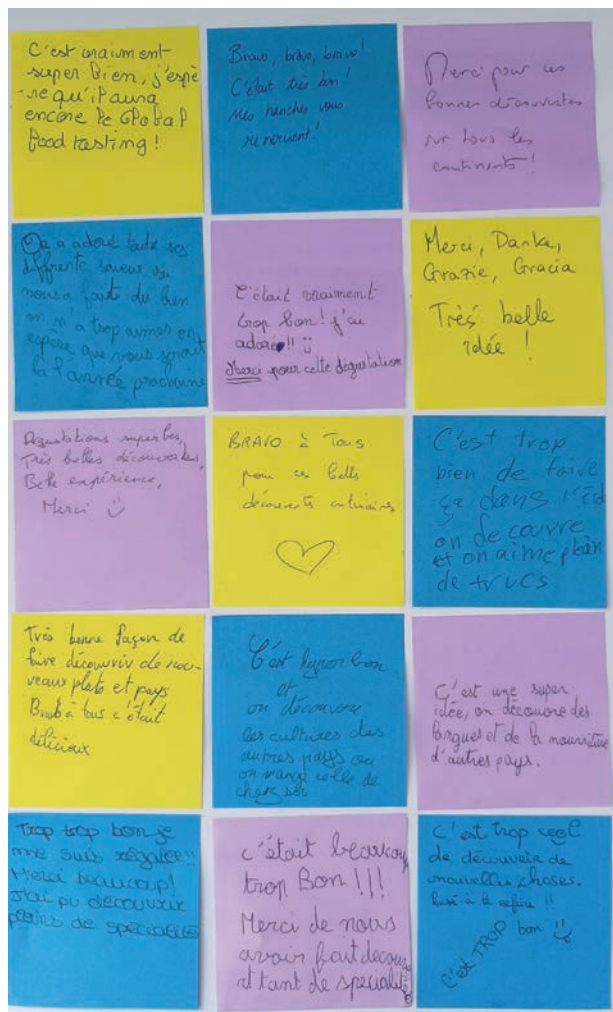 C'est vraiment
super Bien, j'espè
-re qu'il aura
encore le Global
food tasting !
Bravo, bravo, bravo !
C'était très bon !
Mes hanches vous
remercient !
Merci pour ces
bonnes découvertes
sur tous les
continents !
On a adoré toute ses
diffrente saveur
nous a faits du bien
on n'a trop aimer on
espere que vous
la l'année prochaine
C'était vraiment
trop bon ! j'ai
adorée !! ☺
Merci pour cette dégustation
Merci, Danke,
Grazie, Gracia
Très belle
idée !
Dégustations superbes,
Très belles découvertes,
Belle expérience,
Merci ☺
BRAVO à Tous
pour ces belles
découverts culinaires
♡
C'est trop
bien de faire
ça dans l'
on decouvre
et on aime plein
de trucs
Très bonne façon de
faire découvrir de nou-
veaux plats et pays
Bravo à tous c'était
délicieux
C'est hyper bon
et
on découvre
les cultures des
autres pays ou
on mange celle de
chez
C'est une super
idée, on découvre des
langues et de la nourriture
d'autres pays.
Trop trop bon je
me suis régalée !!
Merci beaucoup !
J'ai pu découvrir
pleins de spécialités
c'était beaucoup
trop Bon !!!
Merci de nous
avoir fait decouv
rt tant de specialité
C'est trop cool
de découvrir de
nouvelles choses.
à la refaire !!
C'est TROP bon ☺